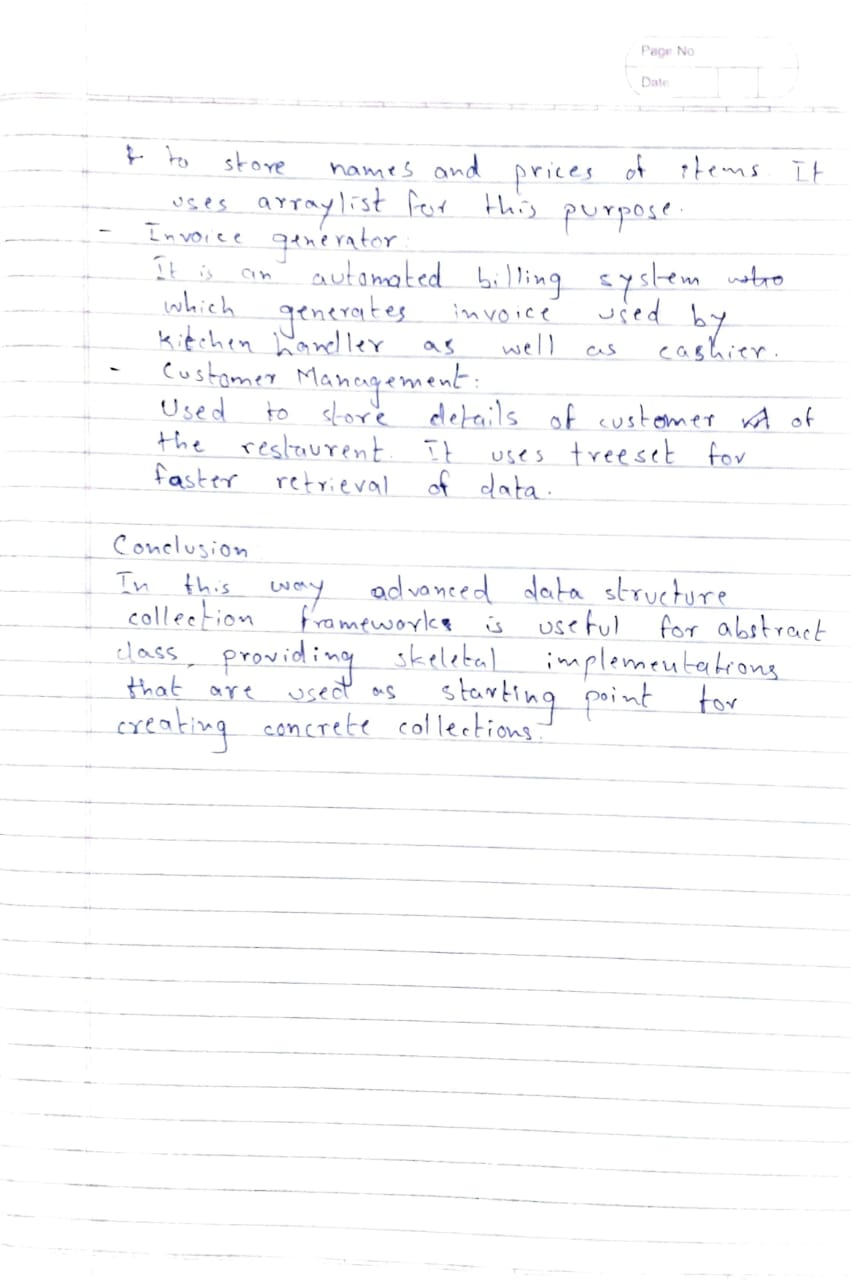 Page No
Date
& to store names and prices of items. It
uses arraylist for this purpose.
- Invoice generator:
It is an automated billing system
which generates invoice used by
kitchen handler as well as cashier.
- Customer Management:
Used to store details of customer of
the restaurent. It uses treeset for
faster retrieval of data.
Conclusion
In this way advanced data structure
collection frameworks is useful for abstract
class, providing skeletal implementations
that are used as starting point for
creating concrete collections.